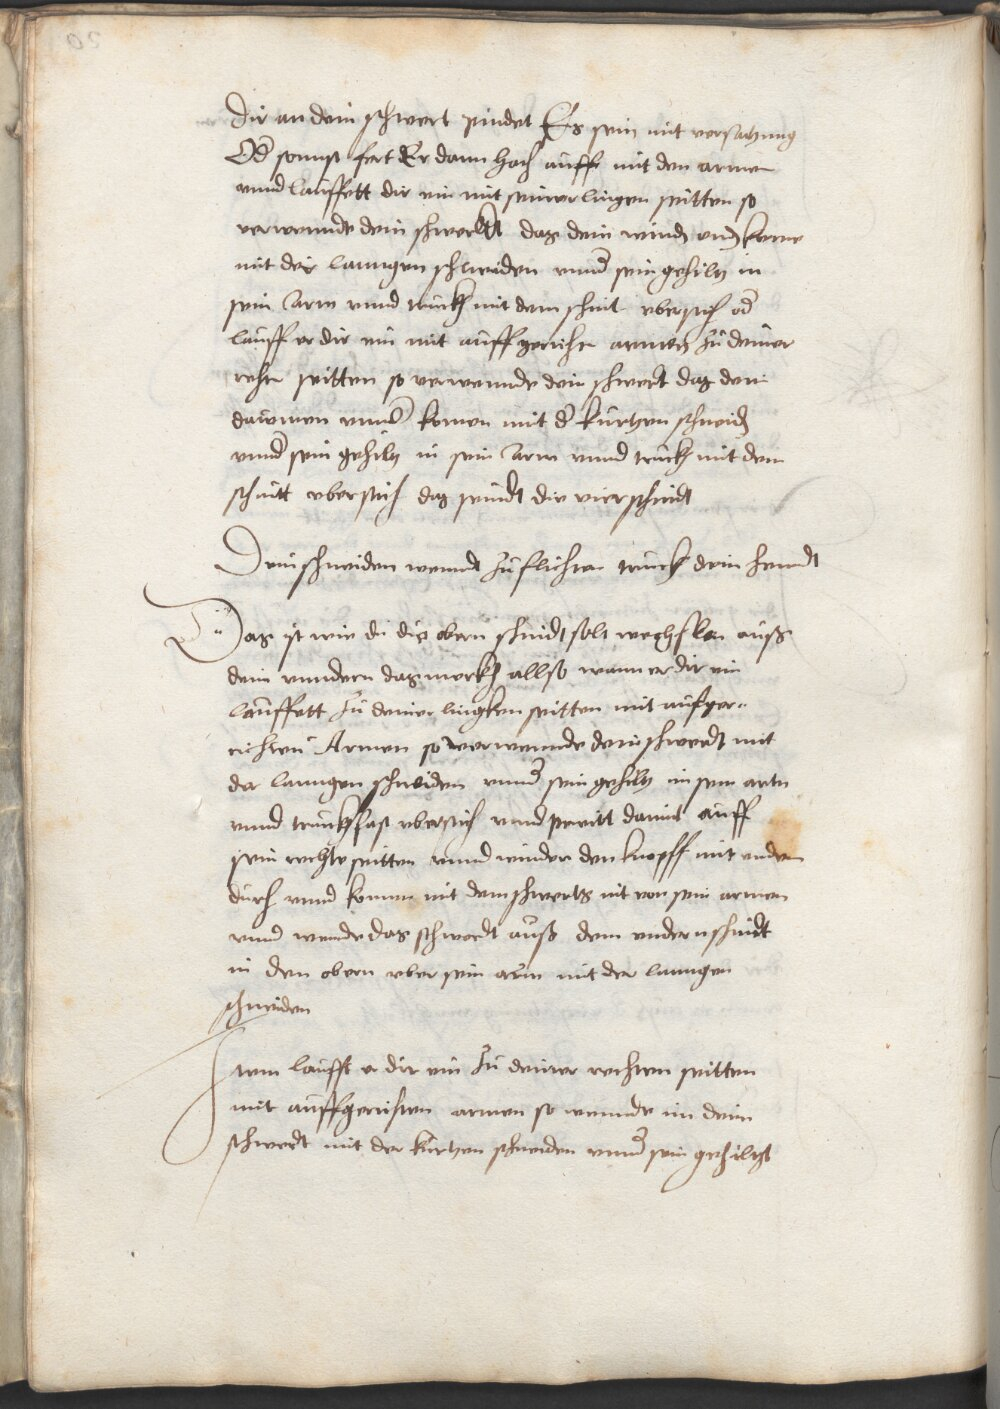 Dir an dein schwert pindet Es sein mit versatzung
Od̄ sonnst fert Er dann hoch auff mit den armen
vnnd lauffett dir ein mit seiner lingen seitten so
verwennde dein schwertt das dein winden vnd̄ komē
mit der lanngen schneiden vnnd̄ sein gehiltz in
sein Arm vnnd truckh mit dem schnit vbersich od̄
lauff er dir ein mit auffgerichtn armen zu deiner
rechtn seitten so verwennde dein schwert das dein
daummen vnnd̄ komen mit d̄ kurtzen schneid̄
vnnd̄ sein gehiltz in sein Arm vnnd truckh mit dem
schnitt vbersich das seindt die vier schnidt
Dein schneiden wenndt zu flichen truckh dein henndt
Das ist wie du die obern schnidt solt wechslen auss
dem vnndern das merckh allso wann er dir ein
lauffett zu deiner lingken seitten mit aufger-
richten Armen so verwennde dein schwerdt mit
der lanngen schneiden vnnd̄ sein gehiltz in sein arm
vnnd truckh fast vbersich vnnd drritt damit auff
sein rechte seitten vnnd winden den knopff mit vnden
durch vnnd komen mit dem schwerts nit von sein armen
vnnd wennde das schwerdt auss dem vndern schnidt
in den obern vber sein arm mit der lanngen
schneiden
Item laufft er dir ein zu deiner rechten seitten
mit auffgerichten armen so wennde im dein
schwerdt mit der kurtzen schneiden vnnd̄ sein gehiltzt